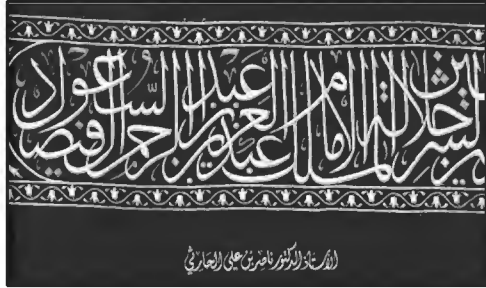 جلالة الملك الامام عبد العزيز بن عبد الرحمن الفيصل السعود
الأستاذ الدكتور ناصر بن علي الحارثي